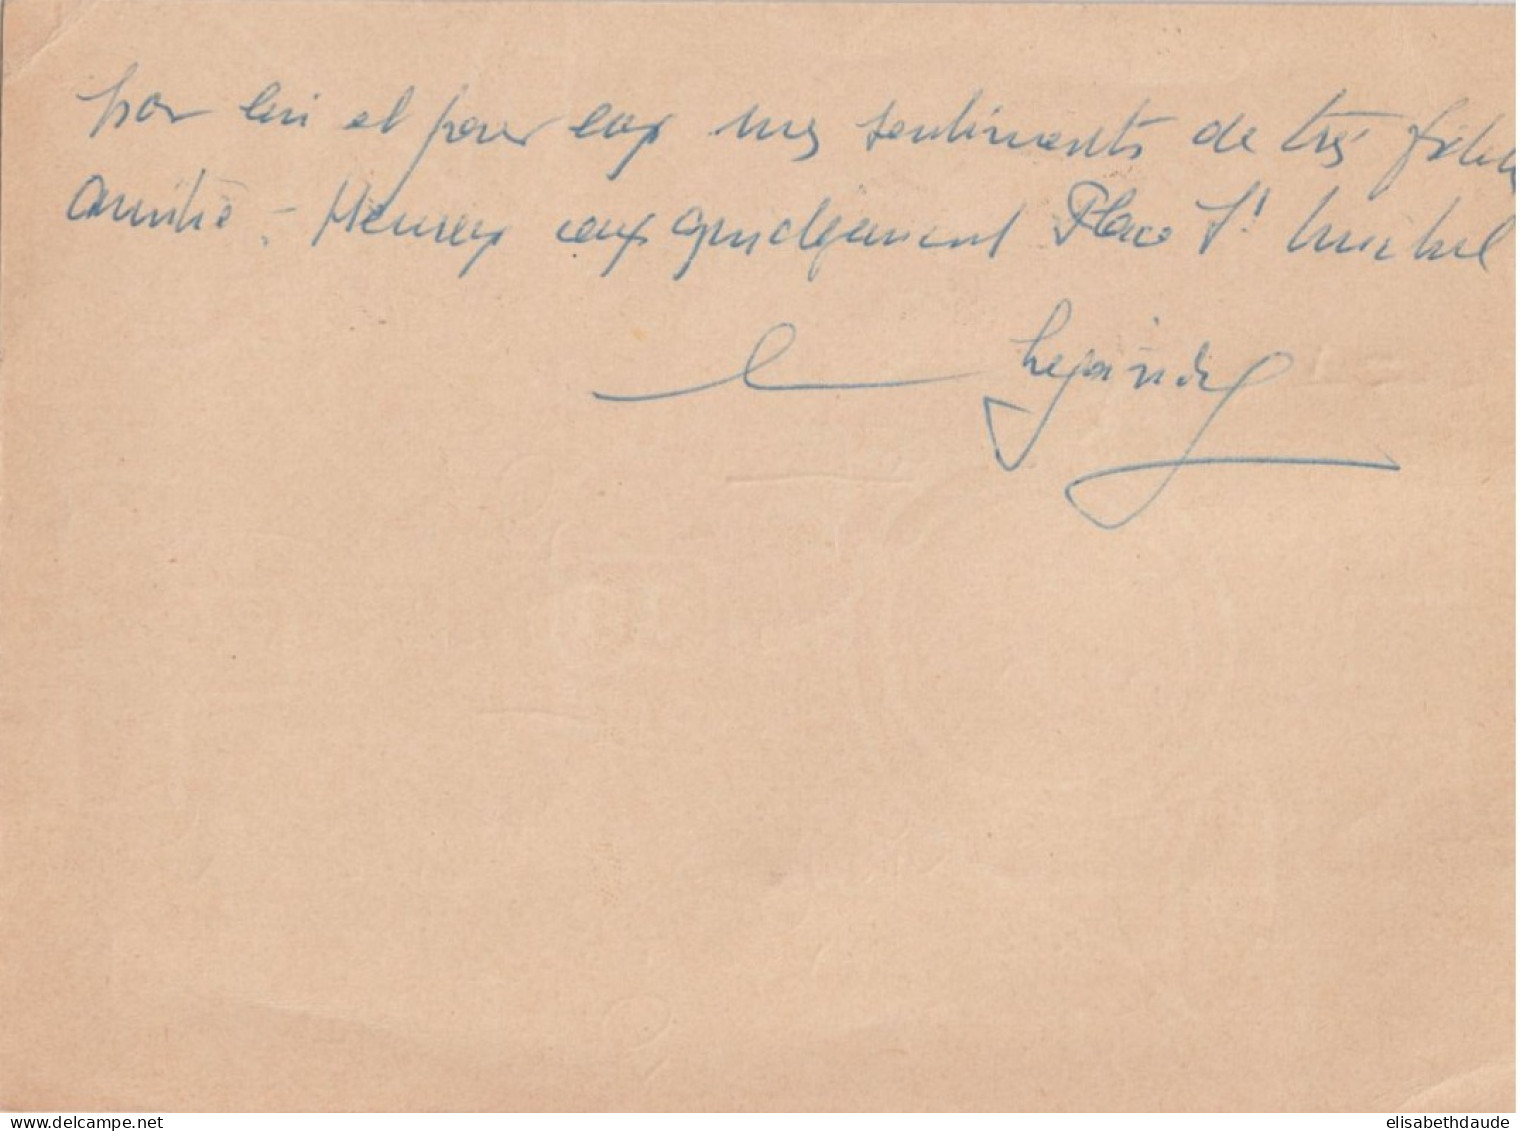 pour lui et pour eux mes sentiments de très fidèle
amitié. - Heureux ceux qui déjeunent Place St Michel
delcampe.net
elisabethdaude